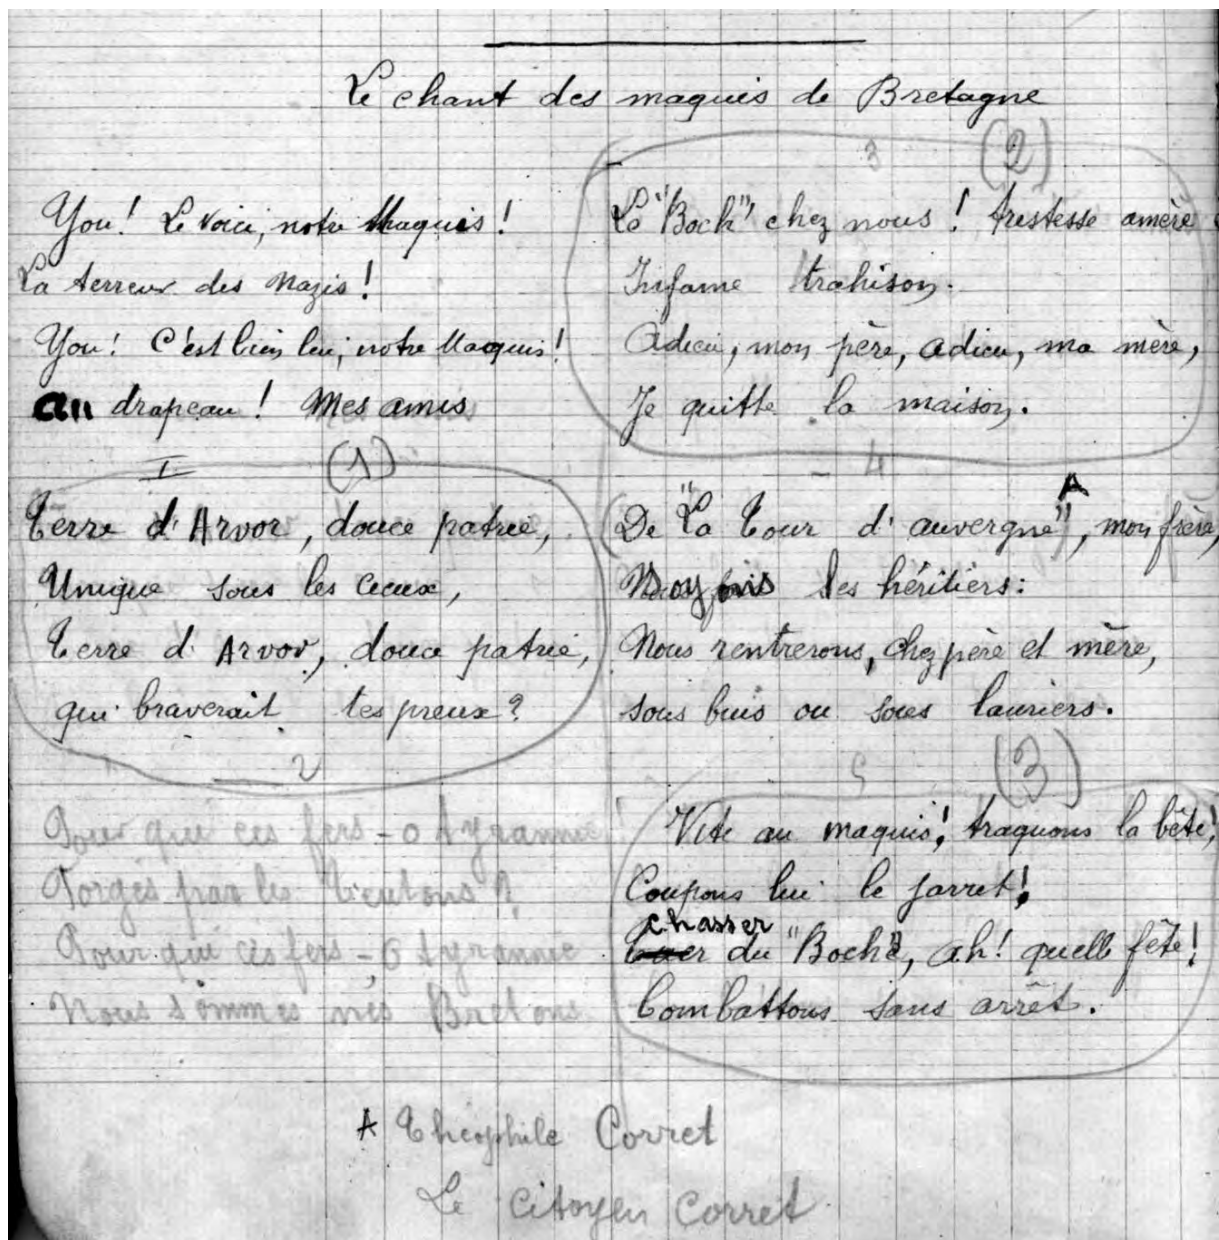 Le chant des maquis de Bretagne
You! Le voici, notre Maquis!
La terreur des Nazis!
You! C'est bien lui, notre Maquis!
au drapeau! Mes amis
I (1)
Terre d'Arvor, douce patrie,
Unique sous les cieux,
Terre d'Arvor, douce patrie,
qui braverait tes preux?
2
Pour qui ces fers - o tyrannie
Forgés par les Teutons?
Pour qui ces fers - o tyrannie
Nous sommes nés Bretons
3 (2)
Le "Boch" chez nous! tristesse amère
Infame trahison.
Adieu, mon père, adieu, ma mère,
Je quitte la maison.
- 4
De "La Tour d'auvergne", mon frère, A
Soyons les héritiers:
Nous rentrerons, chez père et mère,
sous buis ou sous lauriers.
5 (3)
Vite au maquis! traquons la bête!
Coupons lui le jarret!
chasser
tuer du "Boche", ah! quelle fête!
Combattons sans arrêt.
A Théophile Corret
Le citoyen Corret